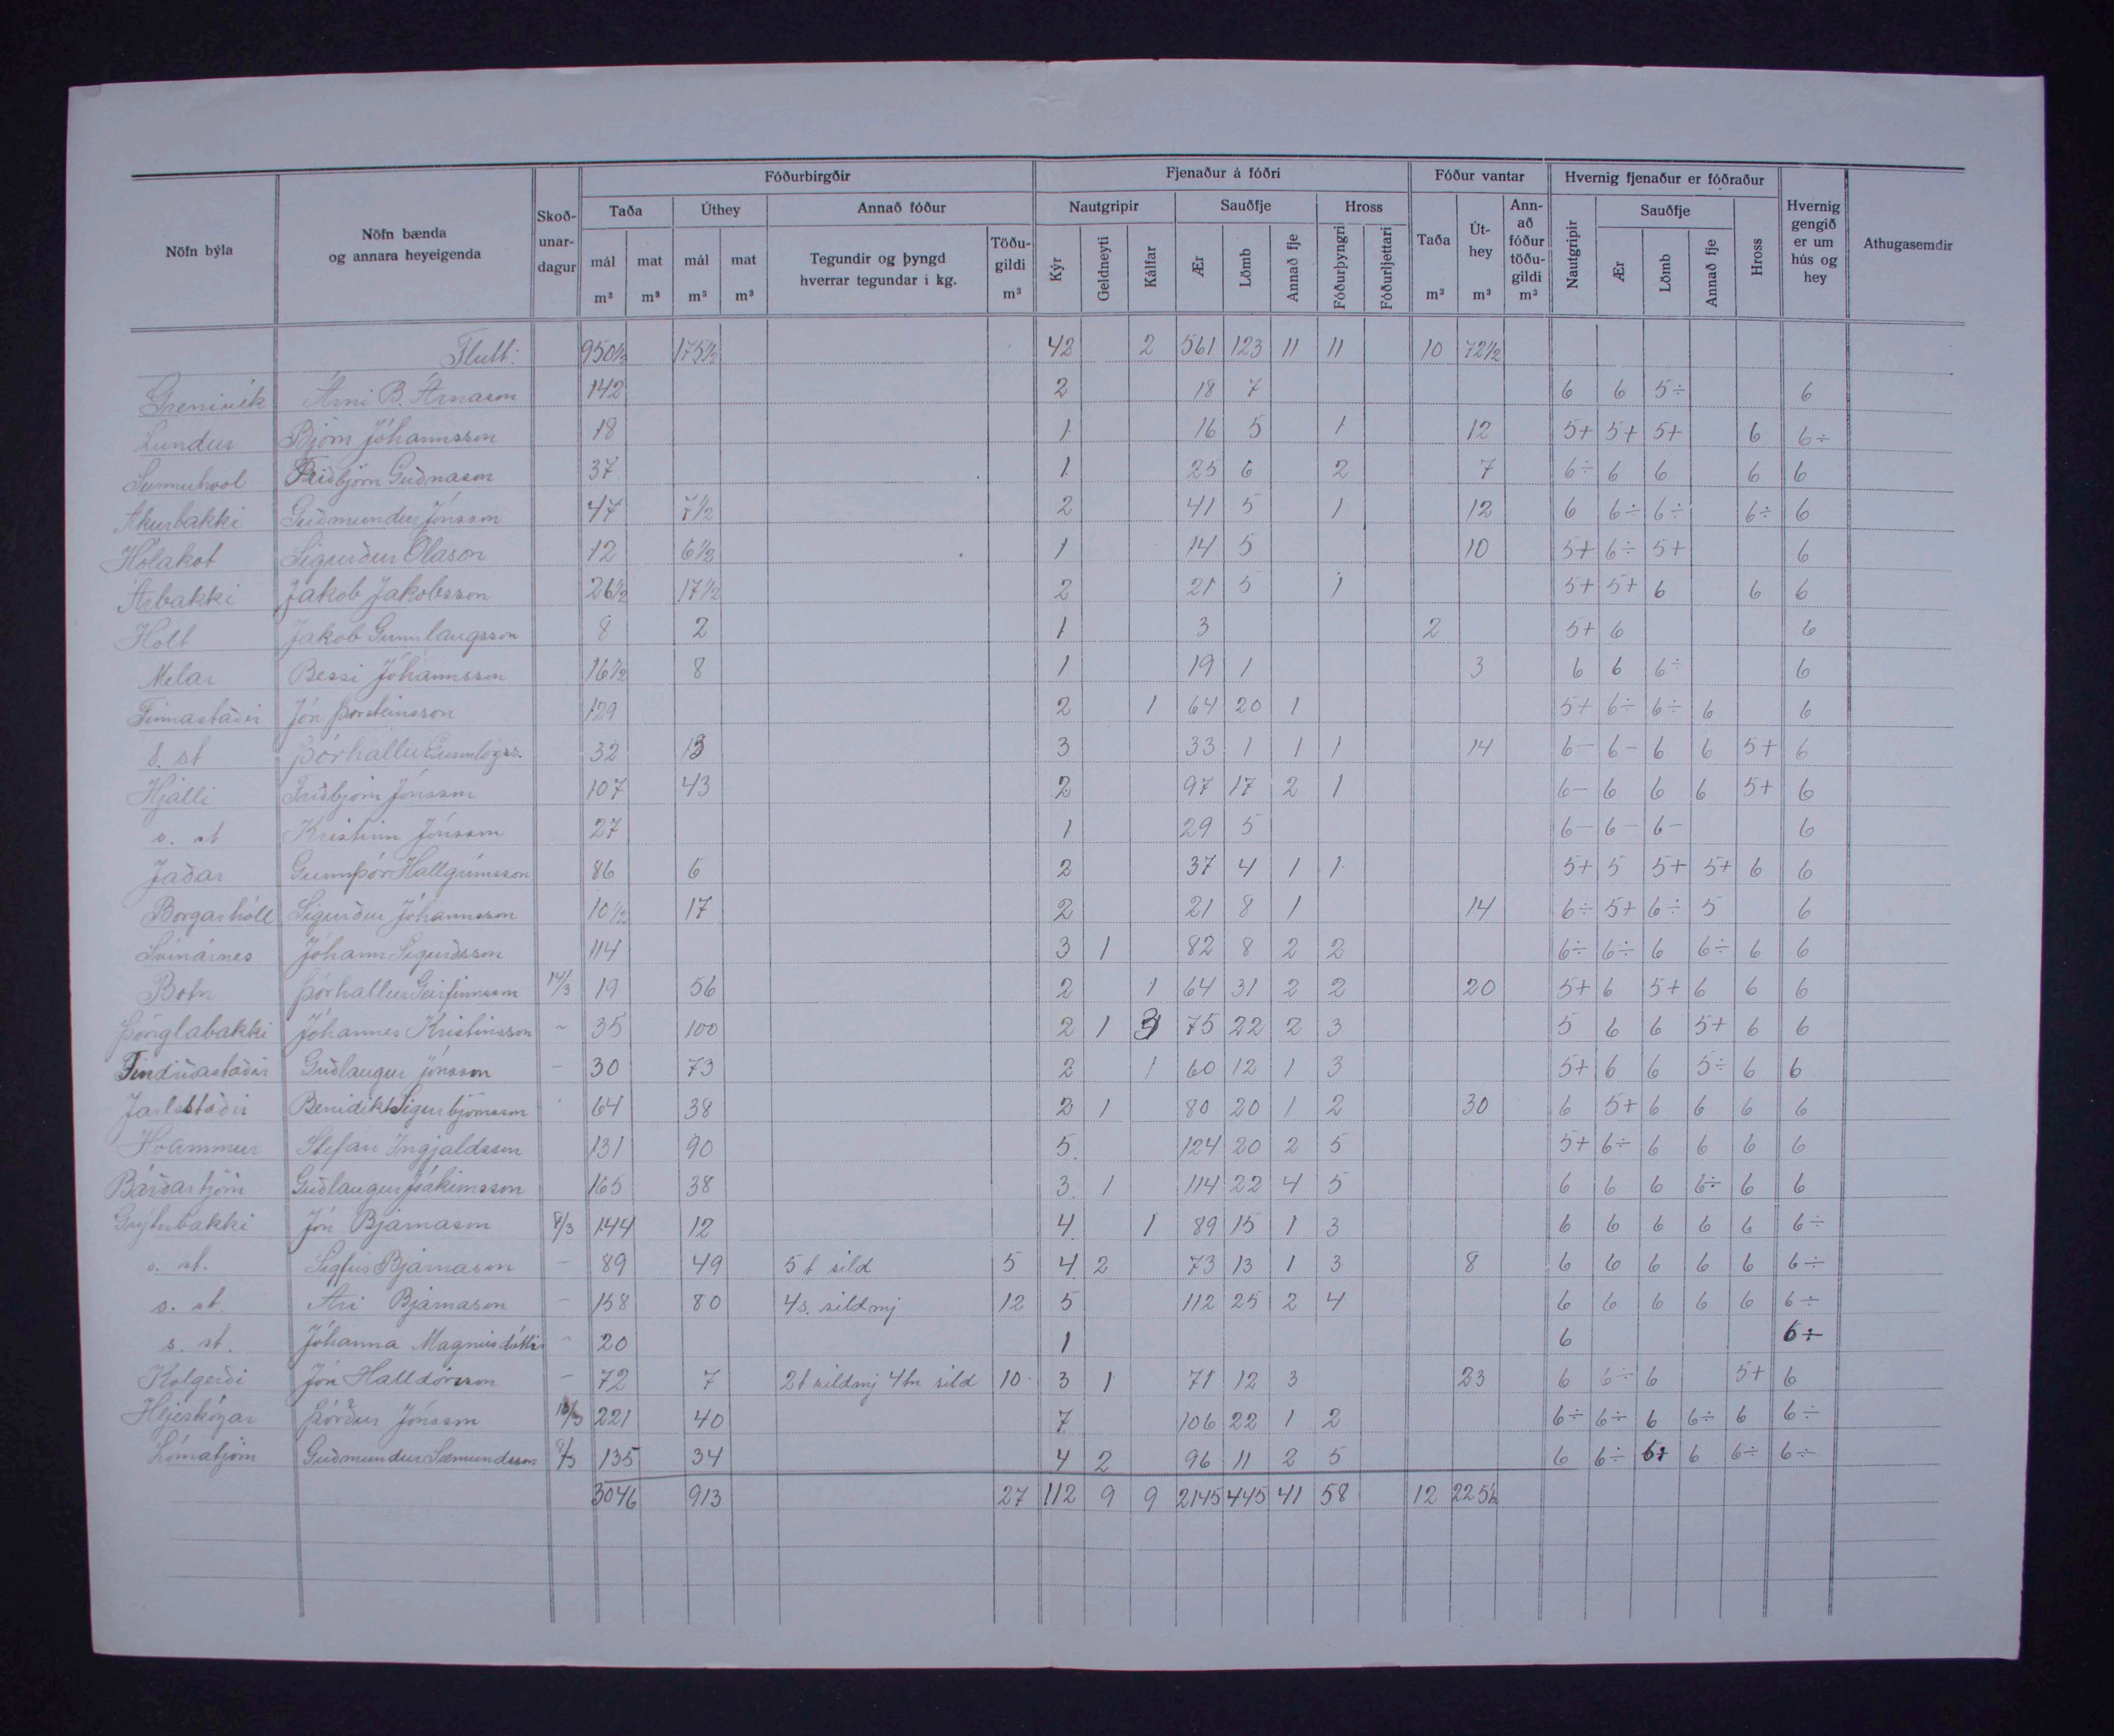 Fóðurbirgðir Fjenaður á fóðri Fóður vantar Hvernig fjenaður er fóðraður
Nöfn býla Nöfn bænda og annara heyeigenda Skoð-unar-dagur Taða Úthey Annað fóður Nautgripir Sauðfje Hross Taða m³ Út-hey m³ Ann-að fóður töðu-gildi m³ Nautgripir Sauðfje Hross Hvernig gengið er um hús og hey Athugasemdir
mál m³ mat m³ mál m³ mat m³ Tegundir og þyngd hverrar tegundar í kg. Töðu-gildi m³ Kýr Geldneyti Kálfar Ær Lömb Annað fje Fóðurþyngri Fóðurljettari Ær Lömb Annað fje
Flutt: 950½ 175½ 42 2 561 123 11 11 10 72½
Grenivík Árni B. Árnason 142 2 18 7 6 6 5÷ 6
Lundur Björn Jóhannsson 18 1 16 5 1 12 5+ 5+ 5+ 6 6÷
Sunnuhvol Friðbjörn Guðnason 37 1 25 6 2 7 6÷ 6 6 6 6
Akurbakki Guðmundur Jónsson 47 7½ 2 41 5 1 12 6 6÷ 6÷ 6÷ 6
Hólakot Sigurður Ólason 12 6½ 1 14 5 10 5+ 6÷ 5+ 6
Árbakki Jakob Jakobsson 26½ 17½ 2 21 5 1 5+ 5+ 6 6 6
Holt Jakob Gunnlaugsson 8 2 1 3 2 5+ 6 6
Melar Bessi Jóhannsson 16½ 8 1 19 1 3 6 6 6÷ 6
Finnastaðir Jón Þorsteinsson 129 2 1 64 20 1 5+ 6÷ 6÷ 6 6
s. st Þórhallur Gunnlögss. 32 13 3 33 1 1 1 14 6- 6- 6 6 5+ 6
Hjalli Friðbjörn Jónsson 107 43 2 97 17 2 1 6- 6 6 6 5+ 6
s. st Kristinn Jónsson 27 1 29 5 6- 6- 6- 6
Jaðar Gunnþór Hallgrímsson 86 6 2 37 4 1 1 5+ 5 5+ 5+ 6 6
Borgarhóll Sigurður Jóhannsson 10½ 17 2 21 8 1 14 6÷ 5+ 6÷ 5 6
Svínárnes Jóhann Sigurðsson 114 3 1 82 8 2 2 6÷ 6÷ 6 6÷ 6 6
Botn Þórhallur Geirfinnsson 14/3 19 56 2 1 64 31 2 2 20 5+ 6 5+ 6 6 6
Þönglabakki Jóhannes Kristinsson - 35 100 2 1 3 75 22 2 3 5 6 6 5+ 6 6
Tindriðastaðir Guðlaugur Jónsson - 30 73 2 1 60 12 1 3 5+ 6 6 5÷ 6 6
Jarlstaðir Benidikt Sigurbjörnsson 64 38 2 1 80 20 1 2 30 6 5+ 6 6 6 6
Hvammur Stefán Ingjaldsson 131 90 5 124 20 2 5 5+ 6÷ 6 6 6 6
Bárðartjörn Guðlaugur Jóakimsson 165 38 3 1 114 22 4 5 6 6 6 6÷ 6 6
Grýtubakki Jón Bjarnason 8/3 144 12 4 1 89 15 1 3 6 6 6 6 6 6÷
s. st. Sigfús Bjarnason - 89 49 5 t sild 5 4 2 73 13 1 3 8 6 6 6 6 6 6÷
s. st. Ari Bjarnason - 158 80 4s. sildmj 12 5 112 25 2 4 6 6 6 6 6 6÷
s. st. Jóhanna Magnúsdóttir - 20 1 6 6÷
Kolgerði Jón Halldórsson - 72 7 2t sildmj 4tn sild 10 3 1 71 12 3 23 6 6÷ 6 5+ 6
Hljeskógar Þórður Jónsson 10/3 221 40 7 106 22 1 2 6÷ 6÷ 6 6÷ 6 6÷
Lómatjörn Guðmundur Sæmundsson 8/3 135 34 4 2 96 11 2 5 6 6÷ 6÷ 6 6÷ 6÷
3046 913 27 112 9 9 2145 445 41 58 12 225½